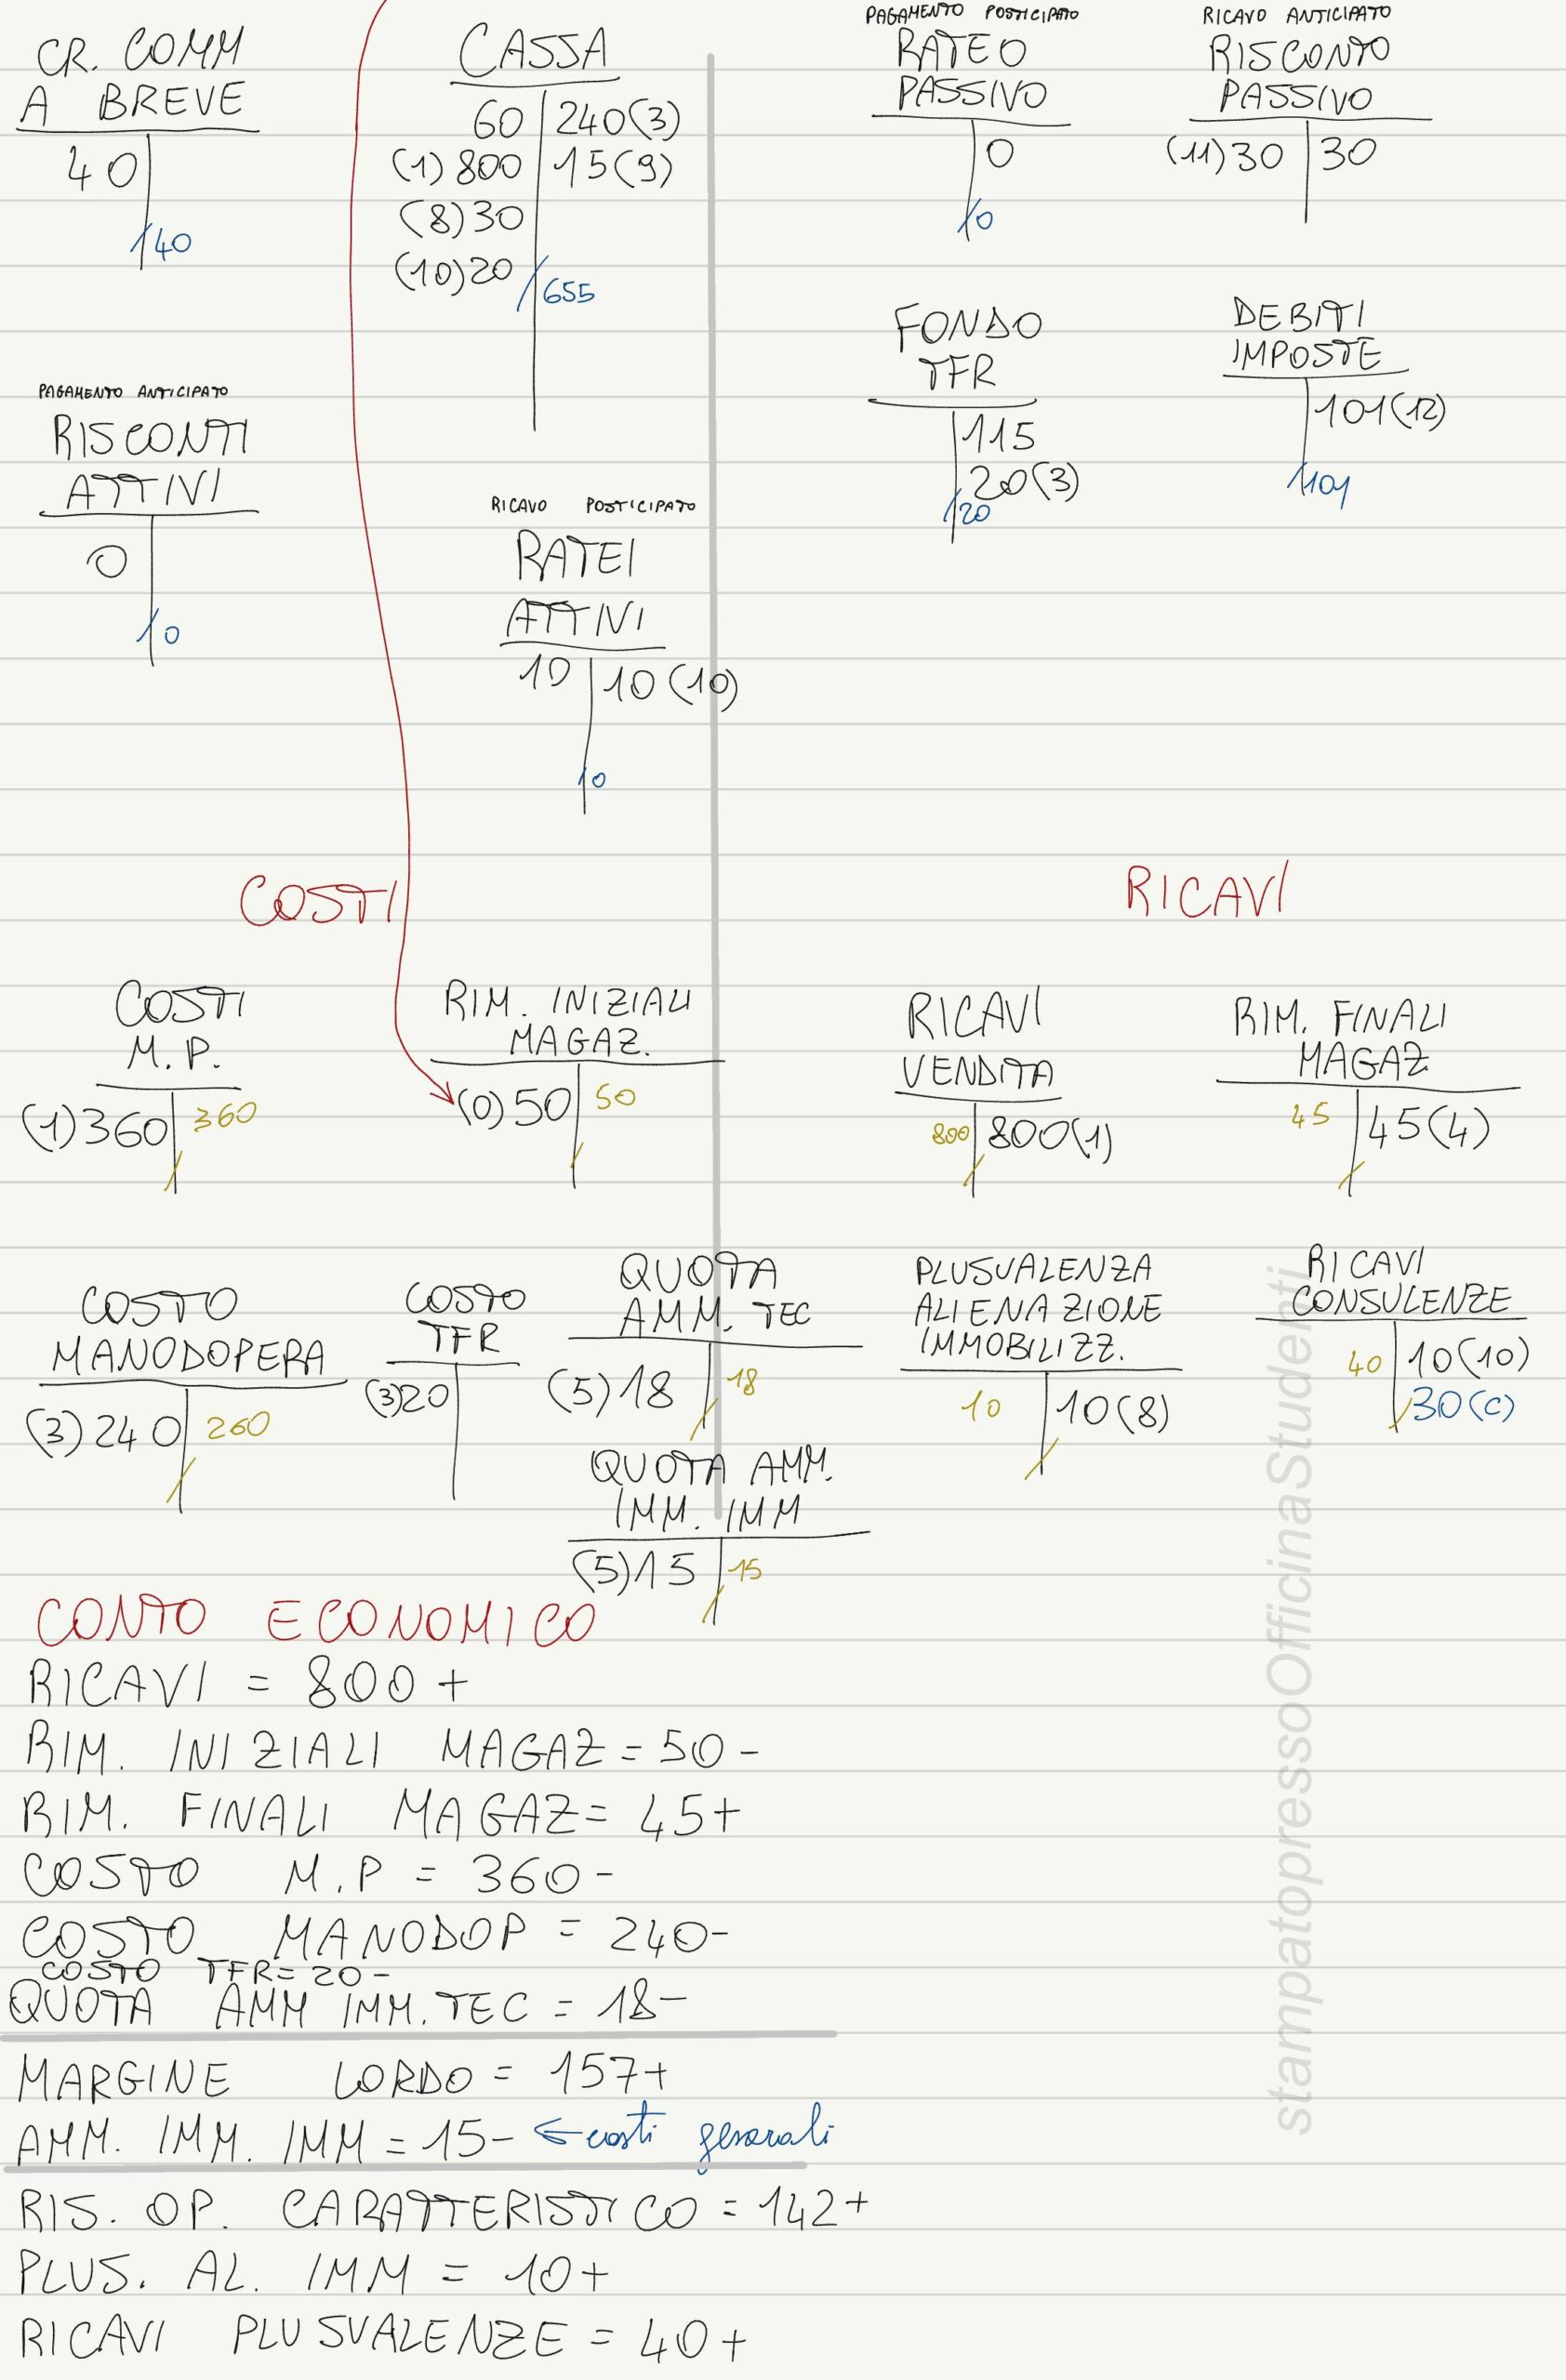 CR. COMM
A BREVE
40
/40
CASSA
60 240(3)
(1)800 15(9)
(8)30
(10)20
/655
PAGAMENTO POSTICIPATO
RATEO
PASSIVO
0
/0
RICAVO ANTICIPATO
RISCONTO
PASSIVO
(11)30 30
FONDO
TFR
115
20(3)
/20
DEBITI
IMPOSTE
101(12)
/101
PAGAMENTO ANTICIPATO
RISCONTI
ATTIVI
0
/0
RICAVO POSTICIPATO
RATEI
ATTIVI
10 10(10)
/0
COSTI
RICAVI
COSTI
M.P.
(1)360 360
RIM. INIZIALI
MAGAZ.
(0)50 50
RICAVI
VENDITA
800 800(1)
RIM. FINALI
MAGAZ
45 45(4)
COSTO
MANODOPERA
(3)240 260
COSTO
TFR
(3)20
QUOTA
AMM. TEC
(5)18 18
QUOTA AMM.
IMM. IMM
(5)15 15
PLUSVALENZA
ALIENAZIONE
IMMOBILIZZ.
10 10(8)
RICAVI
CONSULENZE
40 10(10)
30(C)
CONTO ECONOMICO
RICAVI = 800 +
RIM. INIZIALI MAGAZ = 50 -
RIM. FINALI MAGAZ = 45+
COSTO M.P = 360 -
COSTO MANODOP = 240-
COSTO TFR= 20 -
QUOTA AMM IMM. TEC = 18-
MARGINE LORDO = 157+
AMM. IMM. IMM = 15- ← costi generali
RIS. OP. CARATTERISTICO = 142+
PLUS. AL. IMM = 10+
RICAVI PLUSVALENZE = 40+
stampatopressoOfficinaStudenti